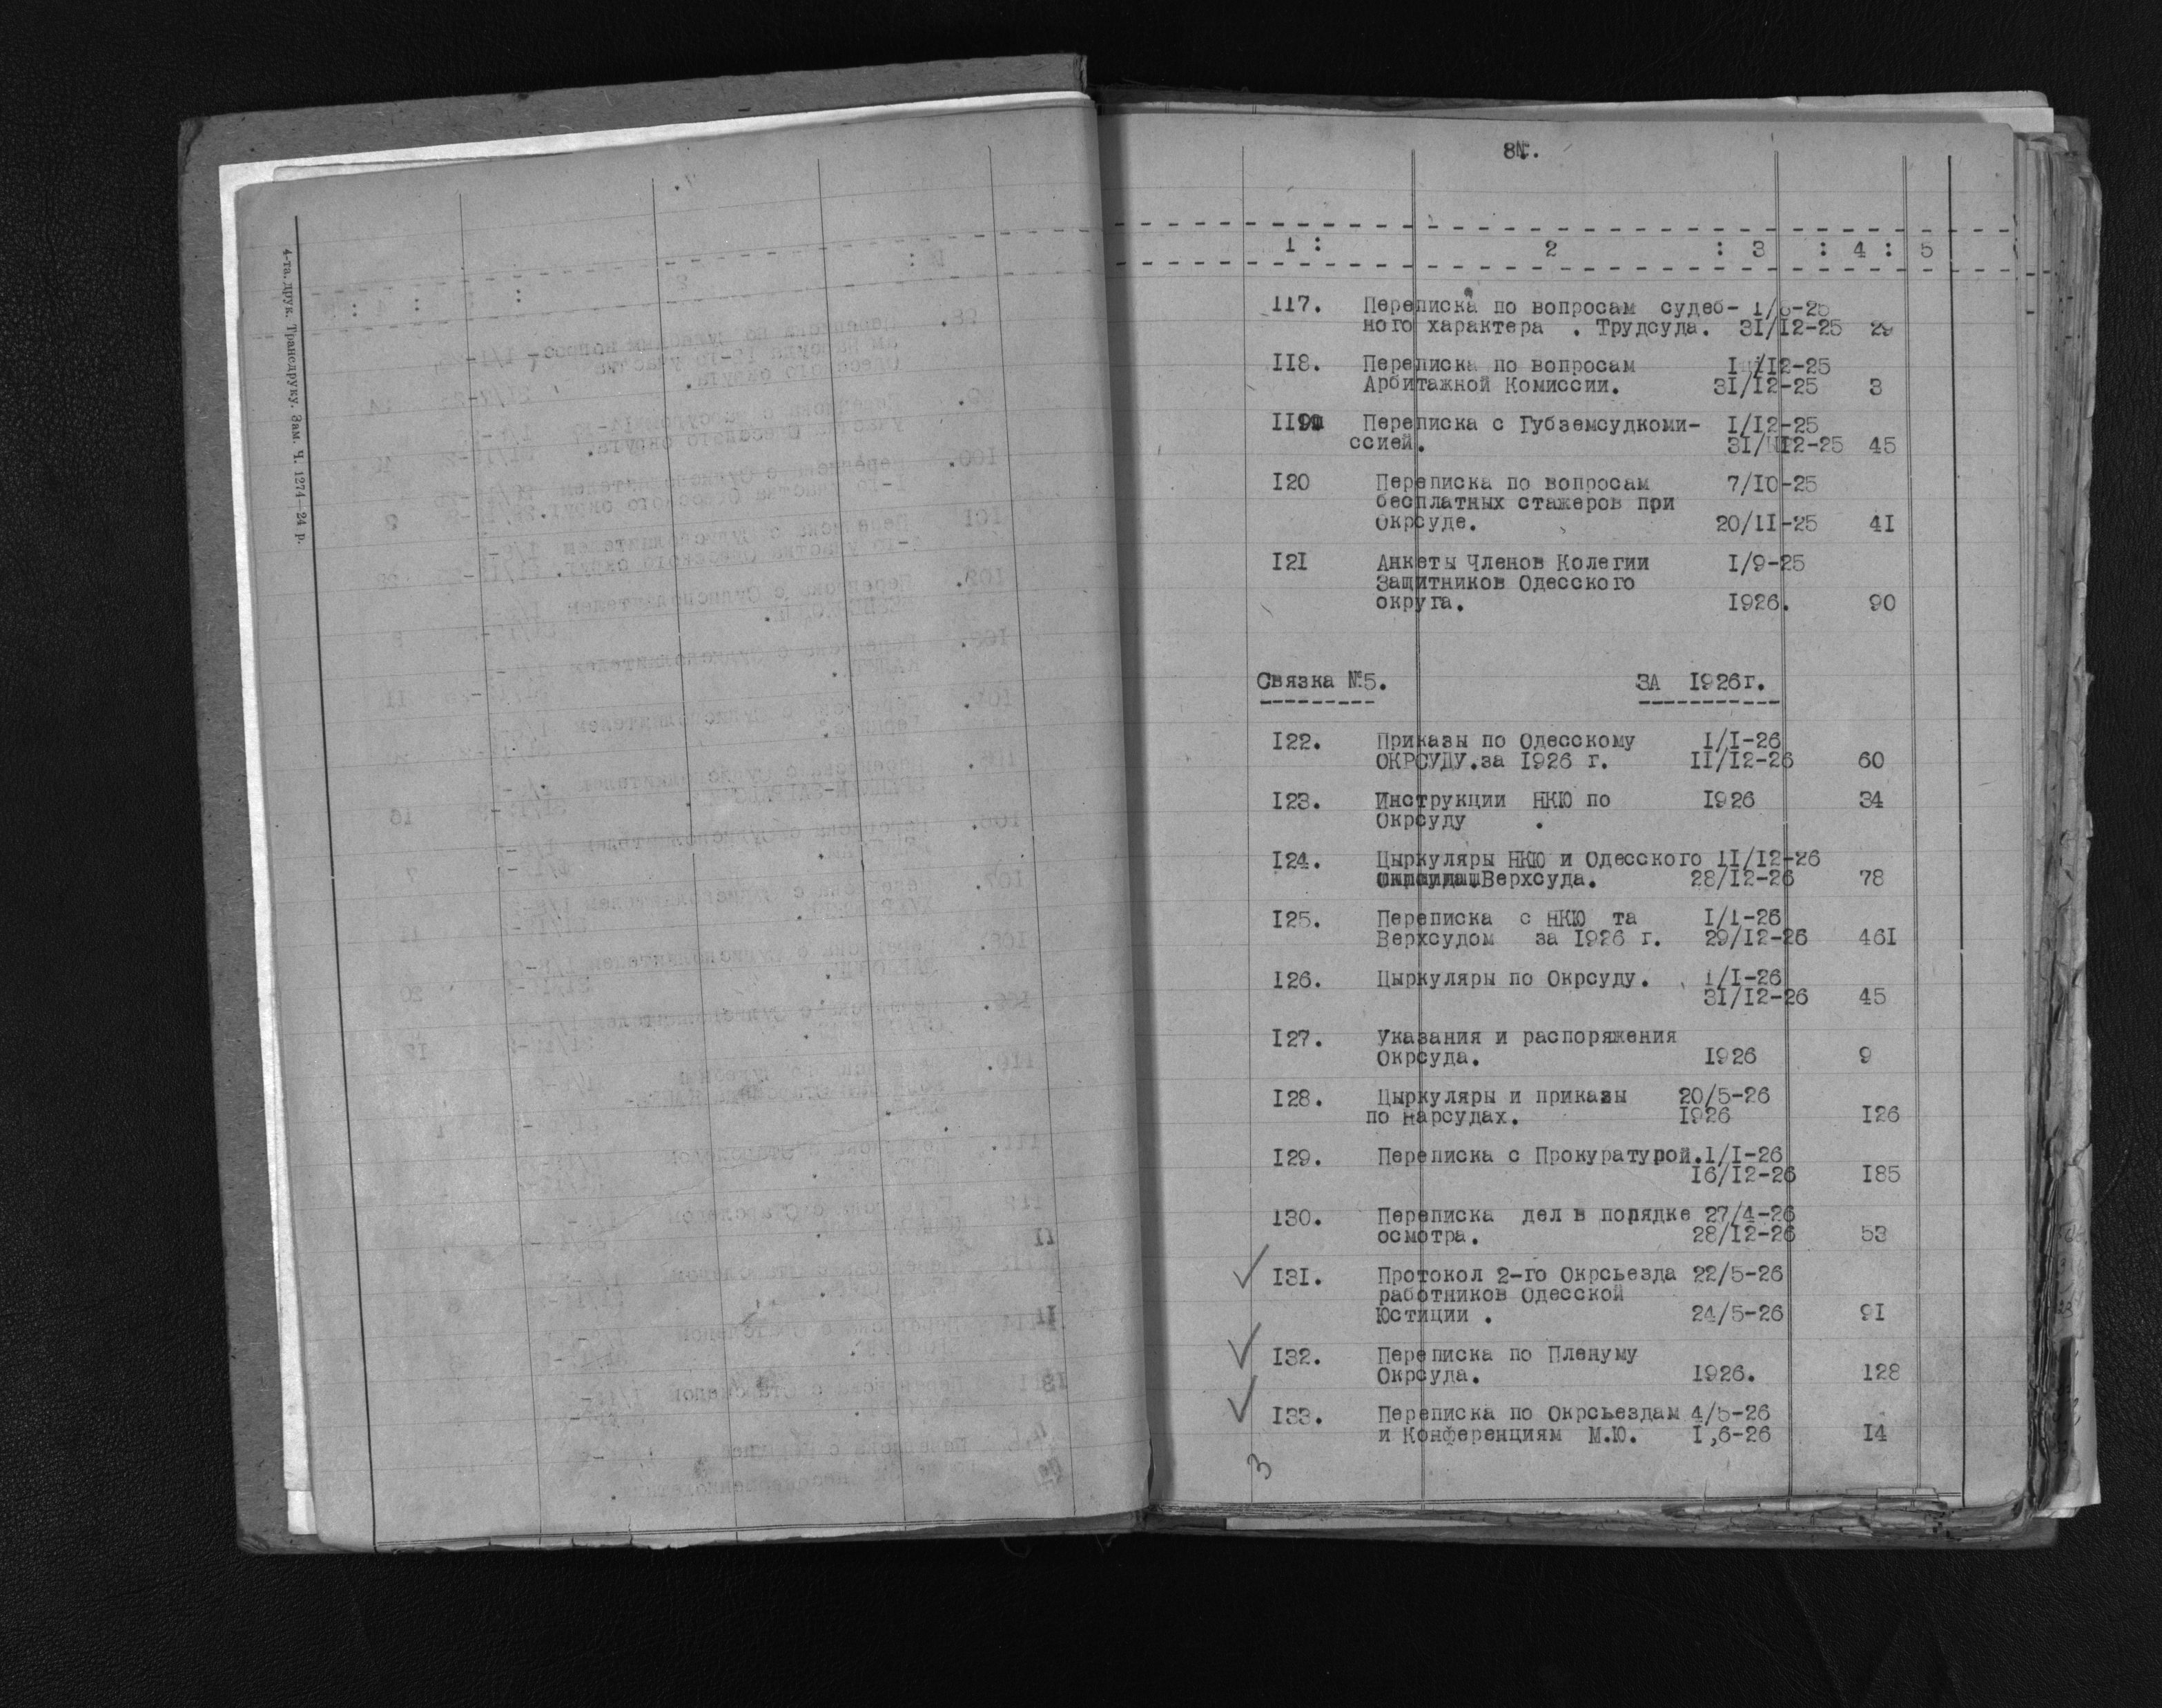 4-та друк. Трансдруку. Зам. Ч. 1274—24 р.
8
1 : 2 : 3 : 4 : 5
117. Переписка по вопросам судеб- 1/6-25
ного характера . Трудсуда. 31/12-25 29
118. Переписка по вопросам 1/12-25
Арбитажной Комиссии. 31/12-25 3
119 Переписка с Губземсудкоми- 1/12-25
ссией. 31/12-25 45
120 Переписка по вопросам 7/10-25
бесплатных стажеров при
Окрсуде. 20/11-25 41
121 Анкеты Членов Колегии 1/9-25
Защитников Одесского
округа. 1926. 90
Связка №5. ЗА 1926г.
122. Приказы по Одесскому 1/1-26
ОКРСУДУ.за 1926 г. 11/12-26 60
123. Инструкции НКЮ по 1926 34
Окрсуду .
124. Цыркуляры НКЮ и Одесского 11/12-26
Верхсуда. 28/12-26 78
125. Переписка с НКЮ та 1/1-26
Верхсудом за 1926 г. 29/12-26 461
126. Цыркуляры по Окрсуду. 1/1-26
31/12-26 45
127. Указания и распоряжения
Окрсуда. 1926 9
128. Цыркуляры и приказы 20/5-26
по Нарсудах. 1926 126
129. Переписка с Прокуратурой. 1/1-26
16/12-26 185
130. Переписка дел в порядке 27/4-26
осмотра. 28/12-26 53
131. Протокол 2-го Окрсьезда 22/5-26
работников Одесской
Юстиции . 24/5-26 91
132. Переписка по Пленуму
Окрсуда. 1926. 128
133. Переписка по Окрсьездам 4/5-26
и Конференциям М.Ю. 1,6-26 14
3